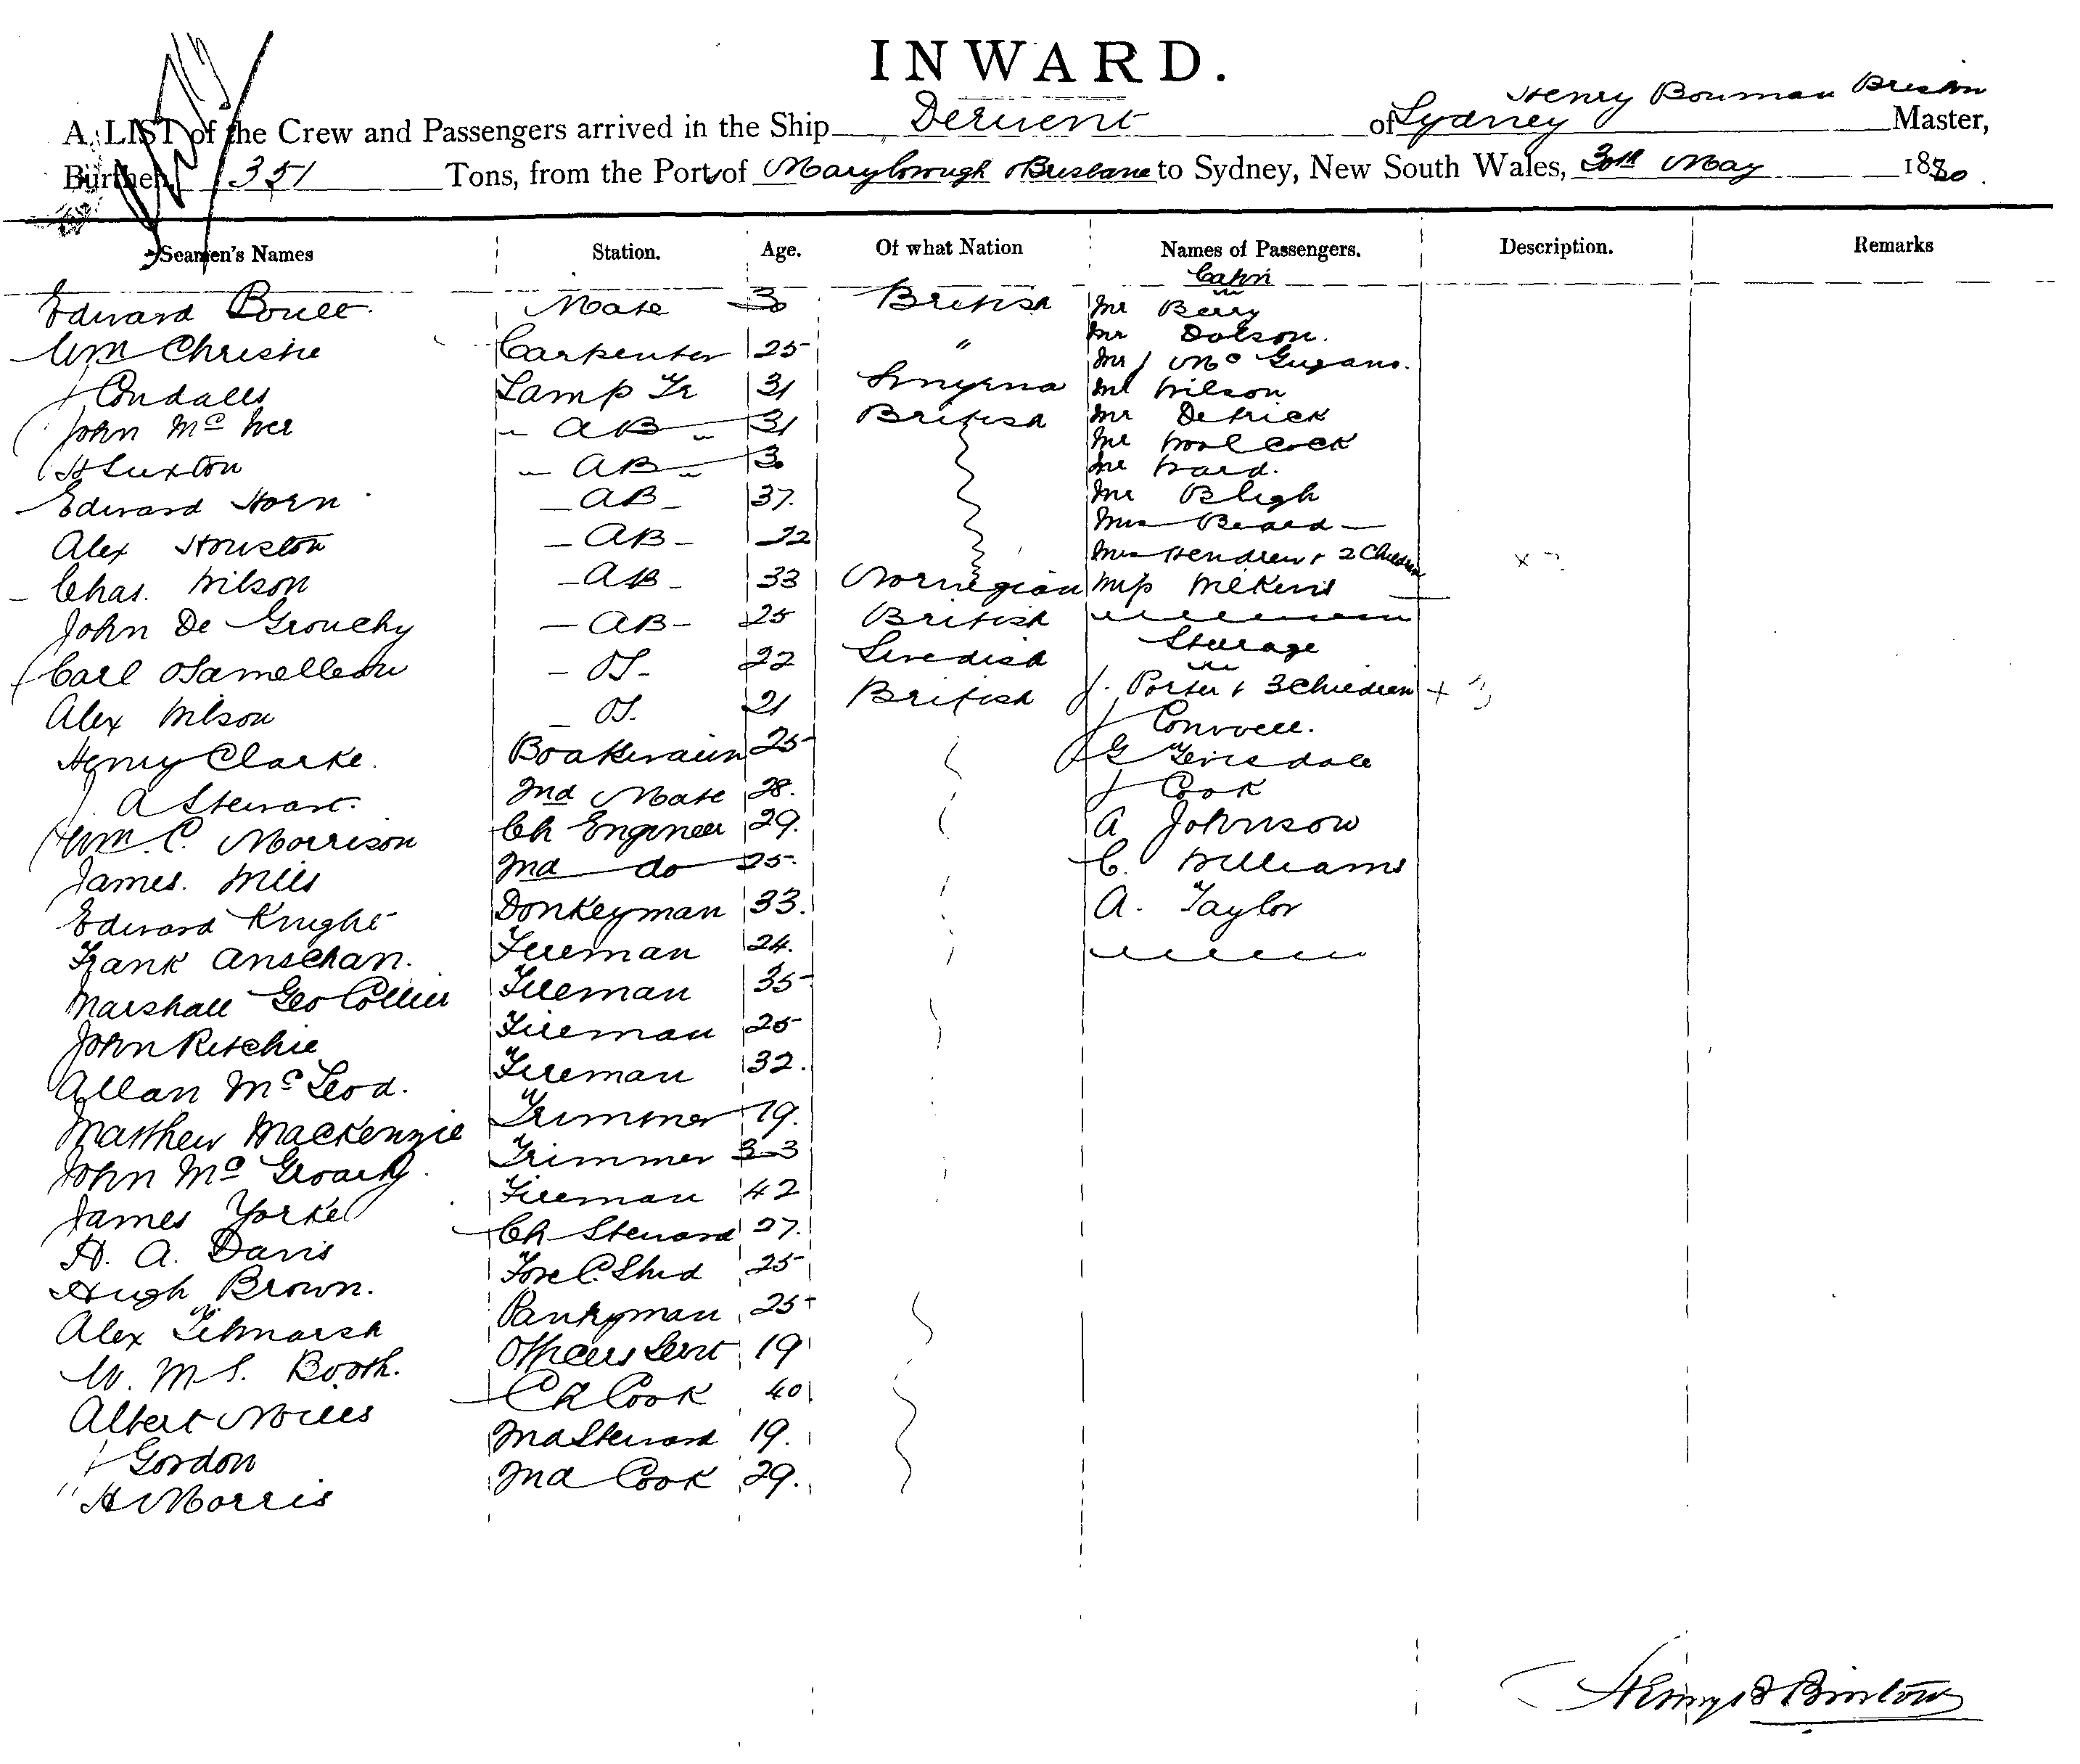 INWARD.
Henry Bowman
A LIST of the Crew and Passengers arrived in the Ship Derwent of Sydney Master,
Burthen 351 Tons, from the Port of Maryborough Brisbane to Sydney, New South Wales, 30th May 1880.
Seamen's Names Station. Age. Of what Nation Names of Passengers. Description. Remarks
Cabin
Edward Mate 30 British Mr Berry
Mr Dobson.
Wm Christie Carpenter 25 " Mr J Mc
J Lamp Tr 31 Smyrna Mr Wilson
John Mc Iver AB 31 British Mr Detrick
Mr Woolcock
H Luxton AB 30 Mr Ward.
Edward Horn AB 37. Mr Bligh
Mrs Beard
Alex Houston AB 22 Mrs Hendren & 2 Children
Chas. Wilson AB 33 Norwegian Miss Wilkins
John De Grouchy AB 25 British
Steerage
Carl OS 22 Swedish
Alex Wilson OS. 21 British J. Porter & 3 Children
J
Henry Clarke. Boatswain 25 G
J. A Stewart. 2nd Mate 28. J Cook
Wm. C. Morrison Ch Engineer 29. A Johnson
James. Mills 2nd do 25. C. Williams
Edward Knight Donkeyman 33. A. Taylor
Frank Fireman 24.
Marshall Geo Collier Fireman 35
John Ritchie Fireman 25
Allan McLeod. Fireman 32.
Matthew Mackenzie Trimmer 19.
John Mc Trimmer 33
James Yorke Fireman 42
H. A. Davis Ch Steward 27.
Hugh Brown. Fore C. Stwd 25
Alex Titmarsh Pantryman 25
W. M. S. Booth. Officers Servt 19
Albert Ch Cook 40
J Gordon 2nd Steward 19.
H Morris 2nd Cook 29.